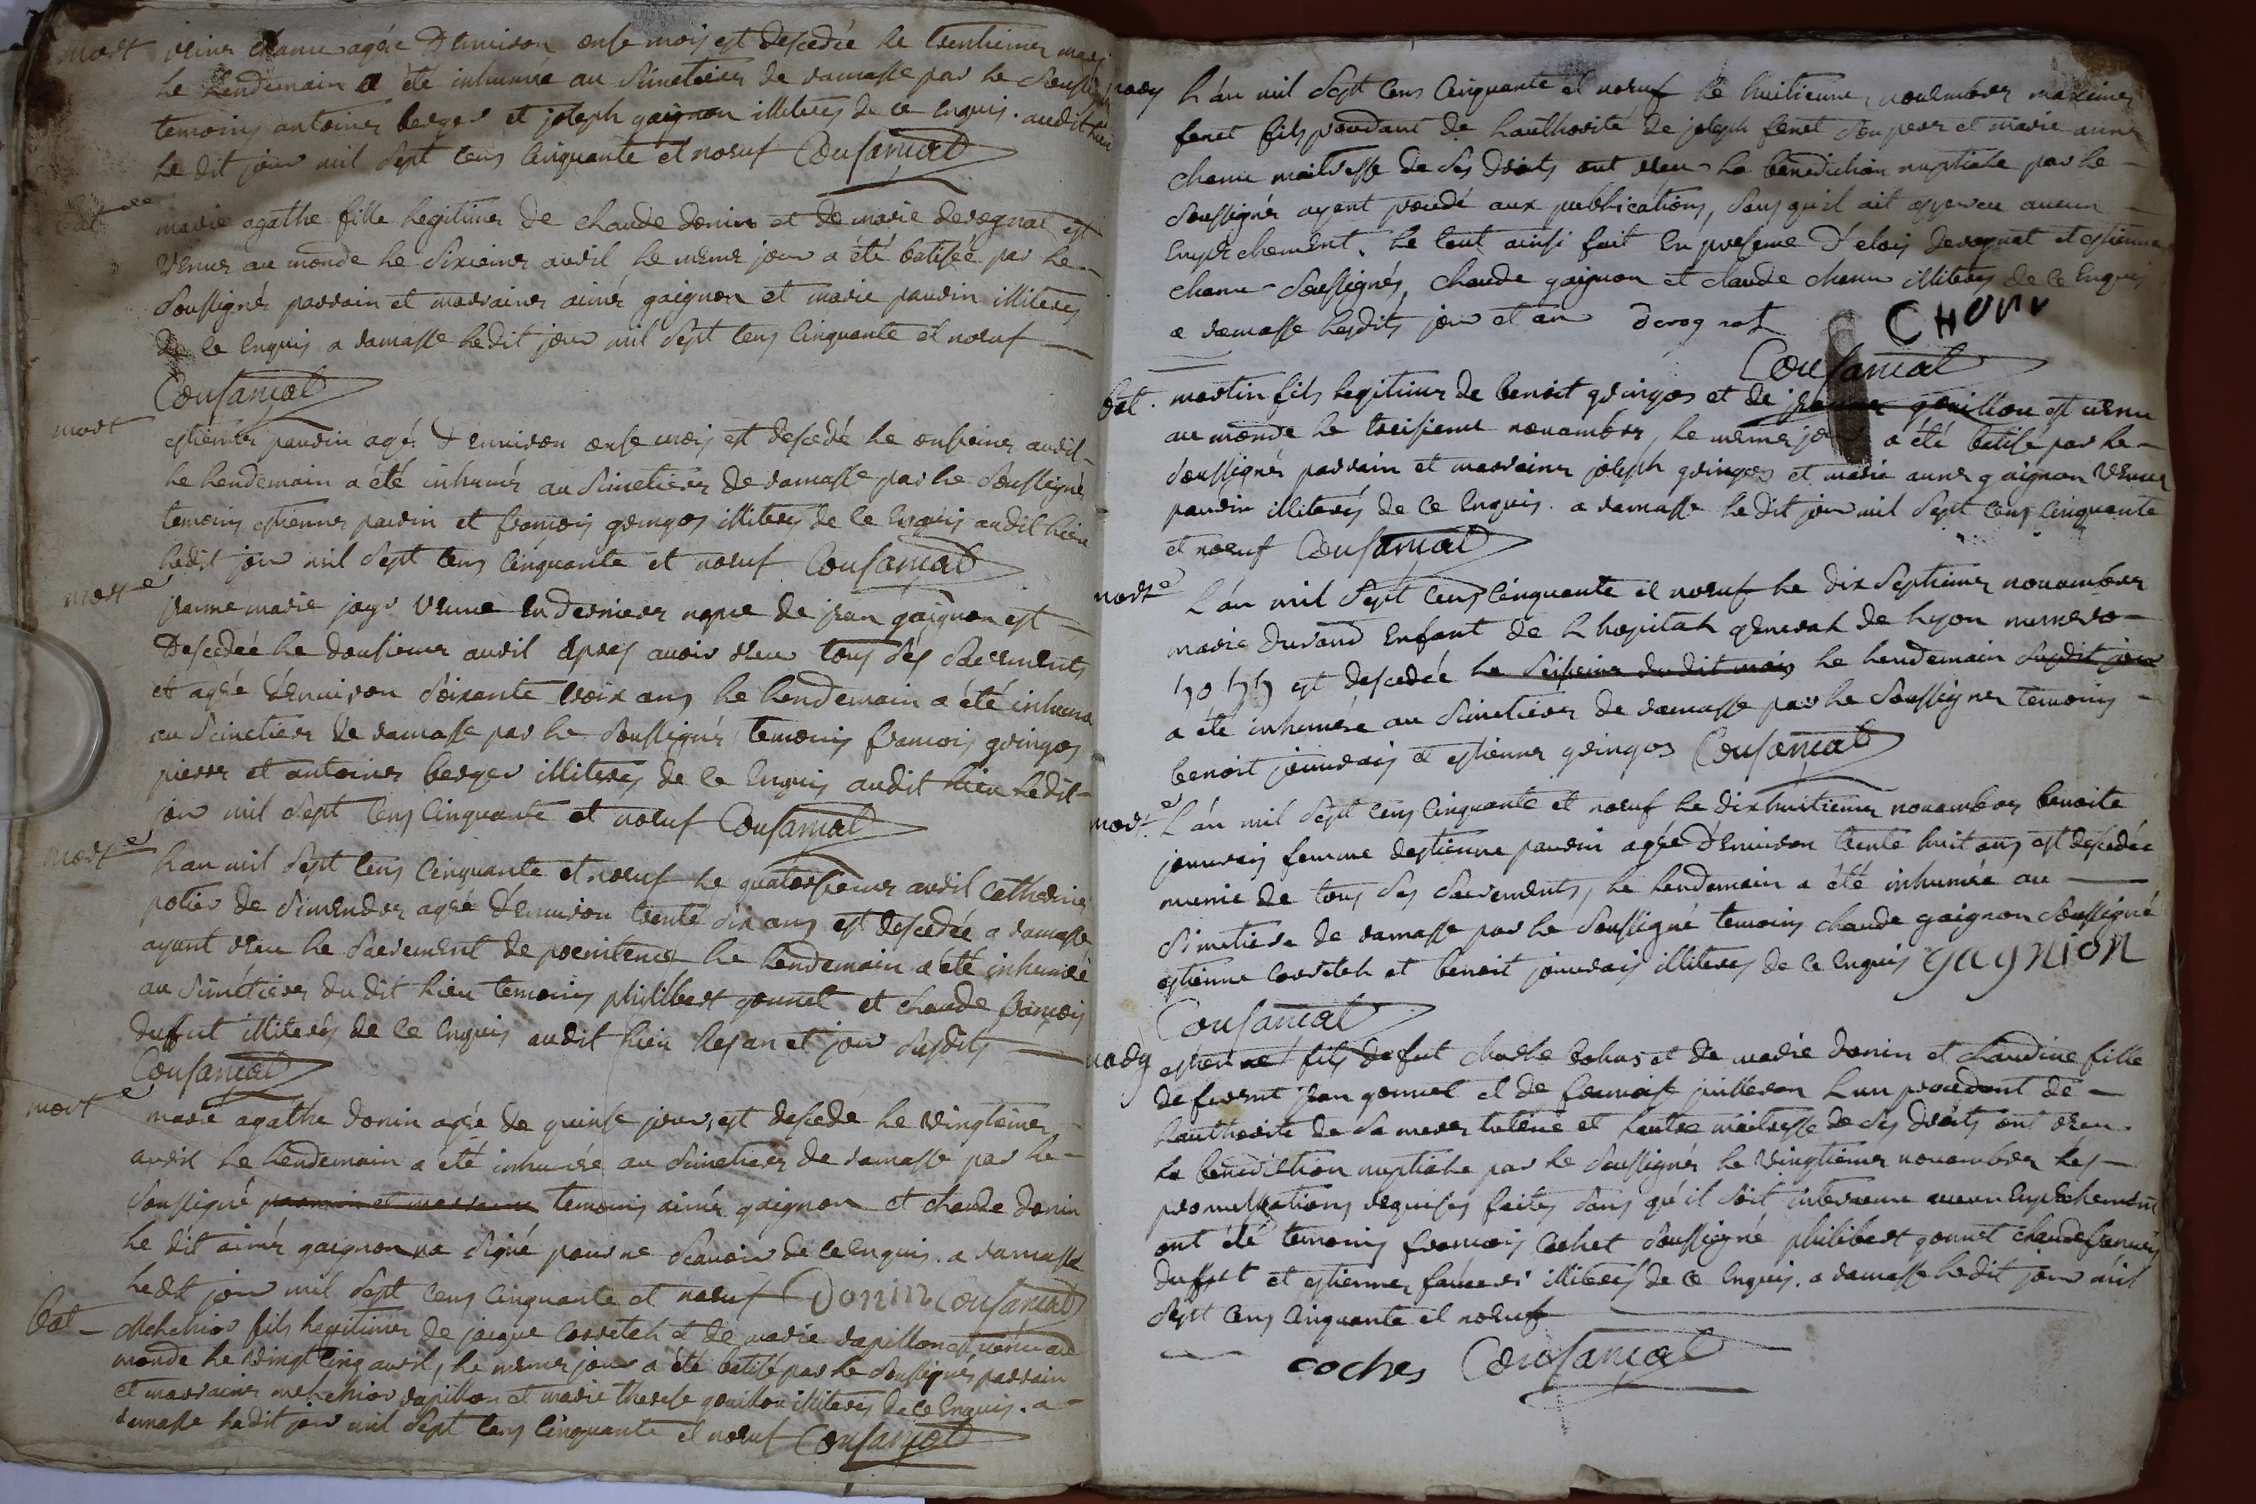 mort reine chanu agée d'environ onse mois est descedée le trentiemer mars
le lendemain a été inhumée au simetierer de ramasse par le soussigné
temoins antoiner berger et joseph gaignon illiterés de ce enquis. audit lieu
le dit jour mil sept cens cinquante et noeuf Cousançat
bat marie agathe fille legitimer de claude donin et de marie derognat est
venuer au monde le sixiemer avril le memer jour a été batisée par le
soussigné parrain et marrainer aimér gaignon et marie paurin illiterés
de ce enquis a ramasse ledit jour mil sept cens cinquante et noeuf
Cousançat
mort estienner paurin agér d'environ onse mois est descedé le onsiemer avril
le lendemain a été inhumér au simetierer de ramasse par le soussigné
temoins estienner paurin et françois gringos illiterés de ce enquis audit lieu
ledit jour mil sept cens cinquante et noeuf Cousançat
morte jeanne marie veuve en dernierer nopce de jean gaignon est
descedée le dousiemer avril apres avoir receu tous ses sacrements
et agée d'environ soixante trois ans le lendemain a été inhumée
au simetierer de ramasse par le soussignér temoins françois gringos
pierrer et antoiner berger illiterés de ce enquis audit lieu ledit
jour mil sept cens cinquante et noeuf Cousançat
morte l'an mil sept cens cinquante et noeuf le quatorsiemer avril catheriner
potier de simandre agée d'environ trente six ans est descedée a ramasse
ayant receu le sacrement de poenitence le lendemain a été inhumée
au simétierer du dit lieu temoins philibert gonnet et claude françois
duffut illiterés de ce enquis audit lieu les an et jour susdits
Cousançat
morte marie agathe donin agée de quinse jours est descedé le vingtiemer
avril le lendemain a été inhumée au simetierer de ramasse par le
soussigné parrain et marrainer temoins aimér gaignon et claude donin
le dit aimér gaignon na signé pour ne scavoir de ce enquis. a ramasse
ledit jour mil sept cens cinquante et noeuf Donin Cousançat
bat Melchior fils legitimer de jacque corretel et de marie rapillon est venu au
monde le vingt cinq avril, le memer jour a été batisé par le soussigné parrain
et marrainer melchior rapillon et marie therese gouillon illiterés de ce enquis. a
ramasse ledit jour mil sept cens cinquante et noeuf Cousançat
mary l'an mil sept cens cinquante et noeuf le huitiemer novembrer maximer
fenet fils procedant de l'authorité de joseph fenet son perer et marie anner
chanu maitresse de ses droits ont receu la benediction nuptiale par le
soussigné ayant procedé aux publications, sans qu'il ait apperceu aucun
empechement. le tout ainsi fait en presence d'elois derognat et estienner
chanu soussignés, claude gaignon et claude chanu illiterés de ce enquis
a ramasse lesdits jour et an derognat CHONV
Cousançat
bat. martin fils legitimer de benoit gringos et de jeanner gouillon est venu
au monde le treisiemer novambrer, le memer jour a été batisé par le
soussignér parrain et marrainer joseph gringos et marie anner gaignon veuver
paurin illiterés de ce enquis. a ramasse le dit jour mil sept cens cinquante
et noeuf Cousançat
morte L'an mil sept cens cinquante et noeuf le dix septiemer novambrer
marie durand enfant de l'hopital general de lyon numero
est descedée le seisiemer du dit mois le lendemain susdit jour
a été inhumée au simetierer de ramasse par le soussigner temoins
benoit jouvrais et estienner gringos Cousançat
morte L'an mil sept cens cinquante et noeuf le dix huitiemer novambrer benoite
jouvrais femme destienne paurin agée d'environ trente huit ans est descedée
munie de tous ses sacrements, le lendemain a été inhumée au
simetiere de ramasse par le soussigné temoins claude gaignon soussigné
estienne corretel et benoit jouvrais illiterés de ce enquis gagnion
Cousançat
mary estienne fils defut charle bohas et de marie donin et claudine fille
de feu jean gonnet et de françoise juilleron l'un procedant de
l'authorité de sa merer tuterice et l'autre maitresse de ses droits ont receu
la benediction nuptiale par le soussigné le vingtiemer novambrer les
promulgations requises faites sans qu'il soit intervenu aucun empechement
ont été temoins françois cochet soussigné philibert gonnet claude françois
duffut et estienner illiterés de ce enquis. a ramasse ledit jour mil
sept cens cinquante et noeuf
coches Cousançat